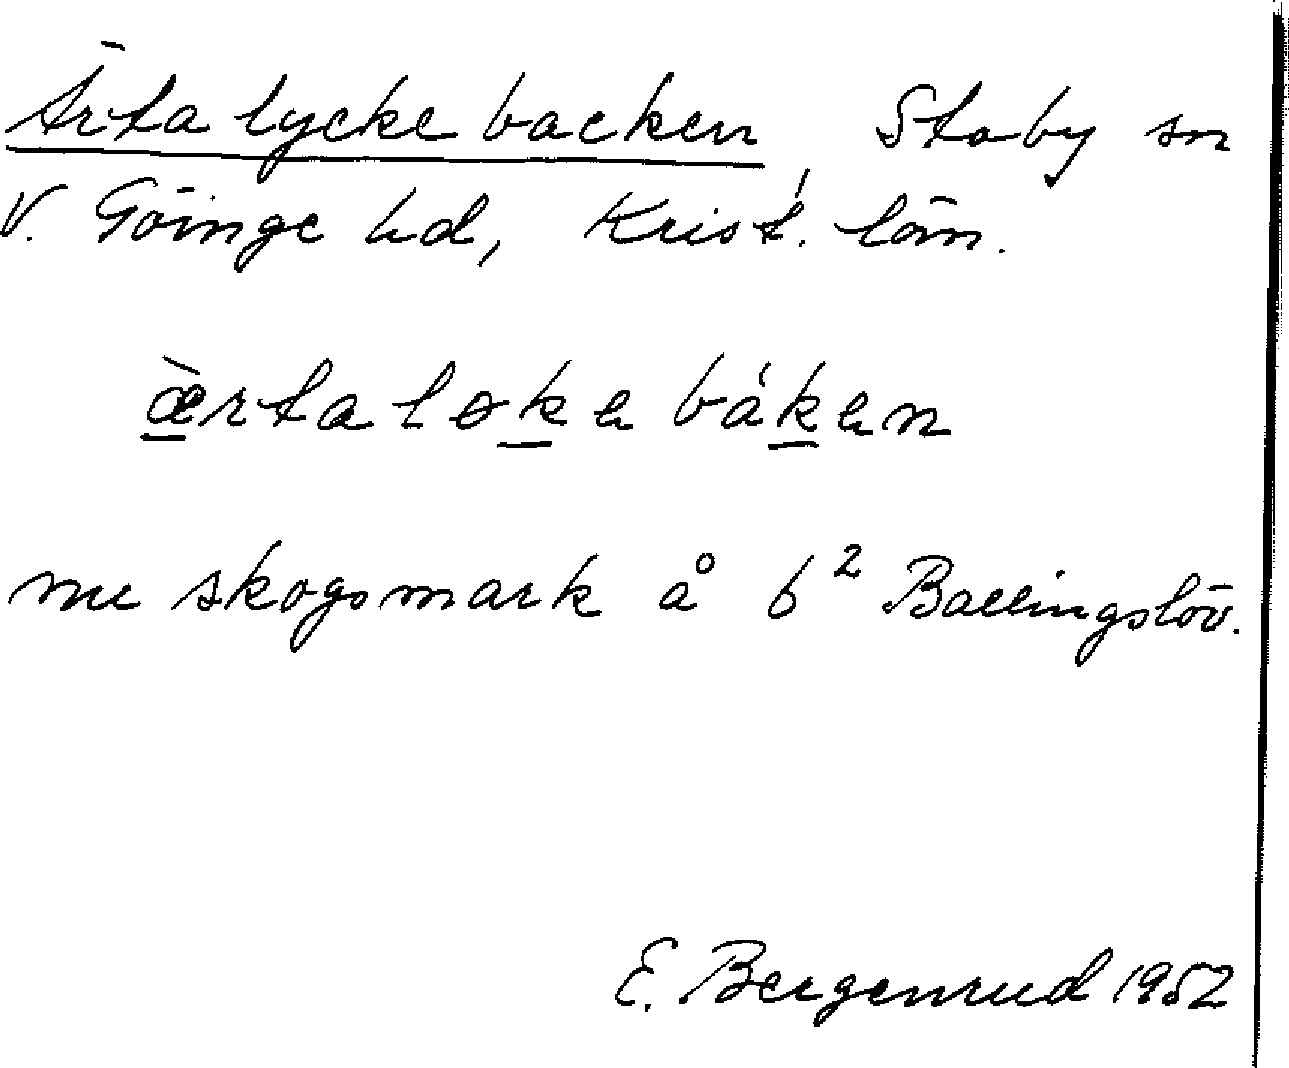 Ärtalyckebacken, Stoby sn
V. Göinge hd, Krist. län.
æ̀rtaløkabákan
nu skogsmark å 6² Ballingslöv.
E. Bergenrud 1952